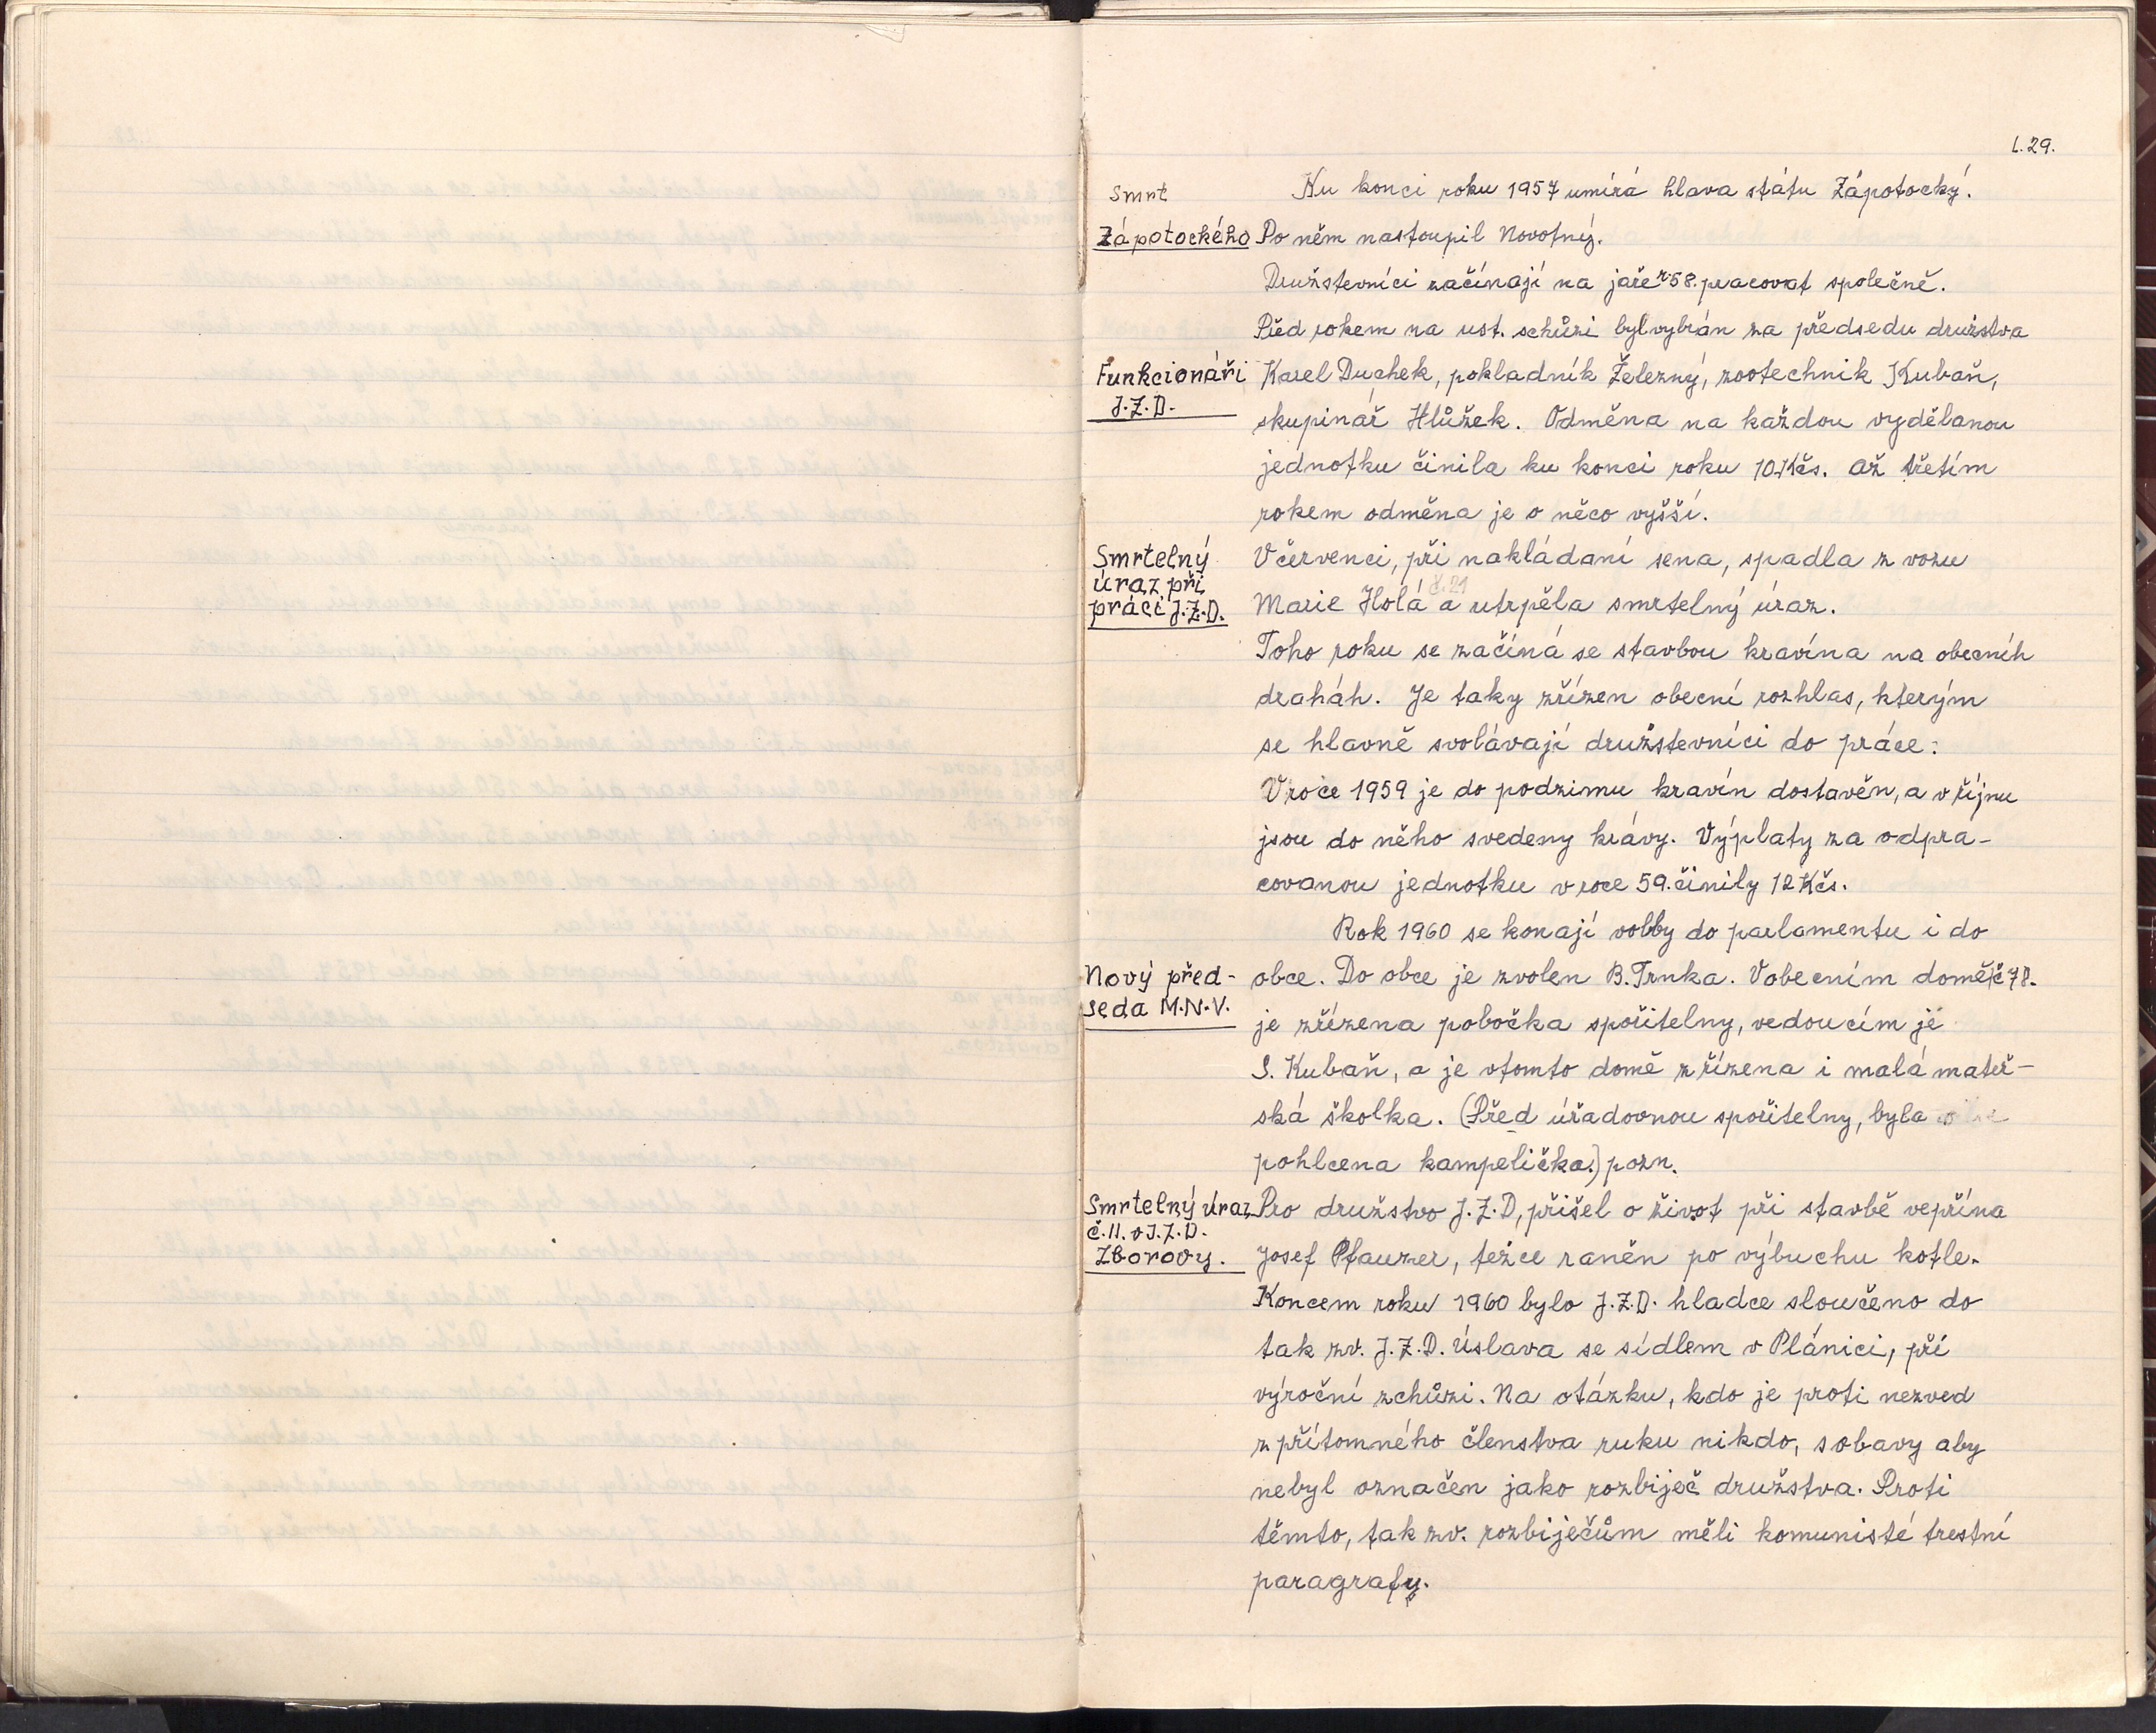 L.29.
Smrt
Zápotockého
Ku konci roku 1957 umírá hlava státu Zápotocký.
Po něm nastoupil Novotný.
Družstevníci začínají na jaře r.58. pracovat společně.
Před rokem na ust. schůzi byl vybrán za předsedu družstva
Funkcionáři
J.Z.D.
Karel Duchek, pokladník Železný, zootechnik Kubaň,
skupinář Hlůžek. Odměna na každou vydělanou
jednotku činila ku konci roku 10.Kčs. až třetím
rokem odměna je o něco vyšší.
Smrtelný
úraz při
práci J.Z.D.
V červenci, při nakládaní sena, spadla z vozu
č.21
Marie Holá a utrpěla smrtelný úraz.
Toho roku se začíná se stavbou kravína na obecníh
draháh. Je taky zřízen obecní rozhlas, kterým
se hlavně svolávají družstevníci do práce.
V roce 1959 je do podzimu kravín dostavěn, a v říjnu
jsou do něho svedeny krávy. Výplaty za odpra-
covanou jednotku v roce 59. činily 12 Kčs.
Rok 1960 se konají volby do parlamentu i do
Nový před-
seda M.N.V.
obce. Do obce je zvolen B. Trnka. V obecním domě č 78.
je zřízena pobočka spořitelny, vedoucím je
S. Kubaň, a je vtomto domě zřízena i malá mateř-
ská školka. (Před úřadovnou spořitelny, byla
pohlcena kampelička.) pozn.
Smrtelný úraz
č.II. v J.Z.D.
Zborovy.
Pro družstvo J.Z.D, přišel o život při stavbě vepřína
Josef Pfauzer, težce raněn po výbuchu kotle.
Koncem roku 1960 bylo J.Z.D. hladce sloučeno do
tak zv. J.Z.D. Úslava se sídlem v Plánici, pří
výroční zchůzi. Na otázku, kdo je proti nezved
z přítomného členstva ruku nikdo, s obavy aby
nebyl označen jako rozbiječ družstva. Proti
těmto, tak zv. rozbiječům měli komunisté trestní
paragrafy.